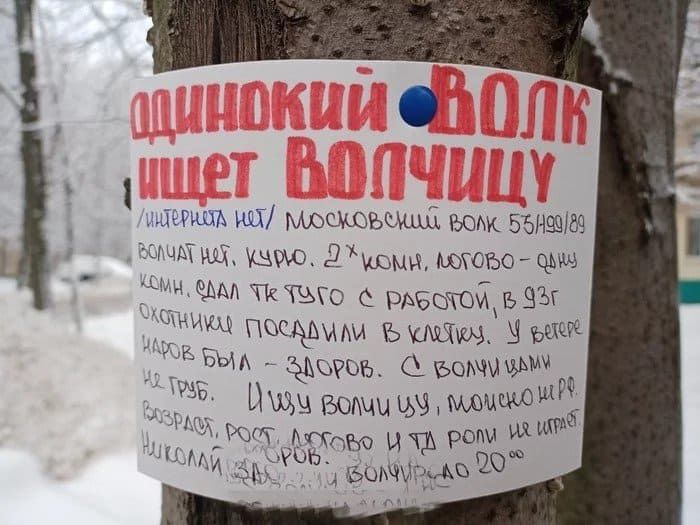 одинокий ВОЛК
ищет ВОЛЧИЦУ
/интернета нет/ московский волк 53/199/89
волчат нет. курю. 2х комн. логово - одну
комн. сдал тк туго с работой, в 93г
охотники посадили в клетку. у ветере
наров был - здоров. с волчицами
не груб. Ищу волчицу, можно не РФ.
возраст, рост, логово и тд роли не играет.
Николай
до 20 00